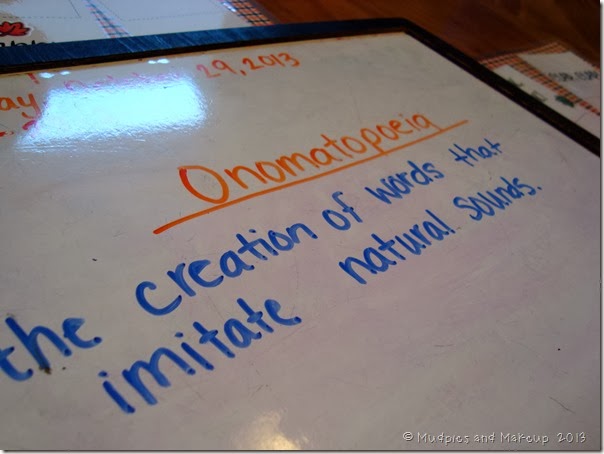 29, 2013
Onomatopoeia
the creation of words that
imitate natural sounds.
© Mudpies and Makeup 2013